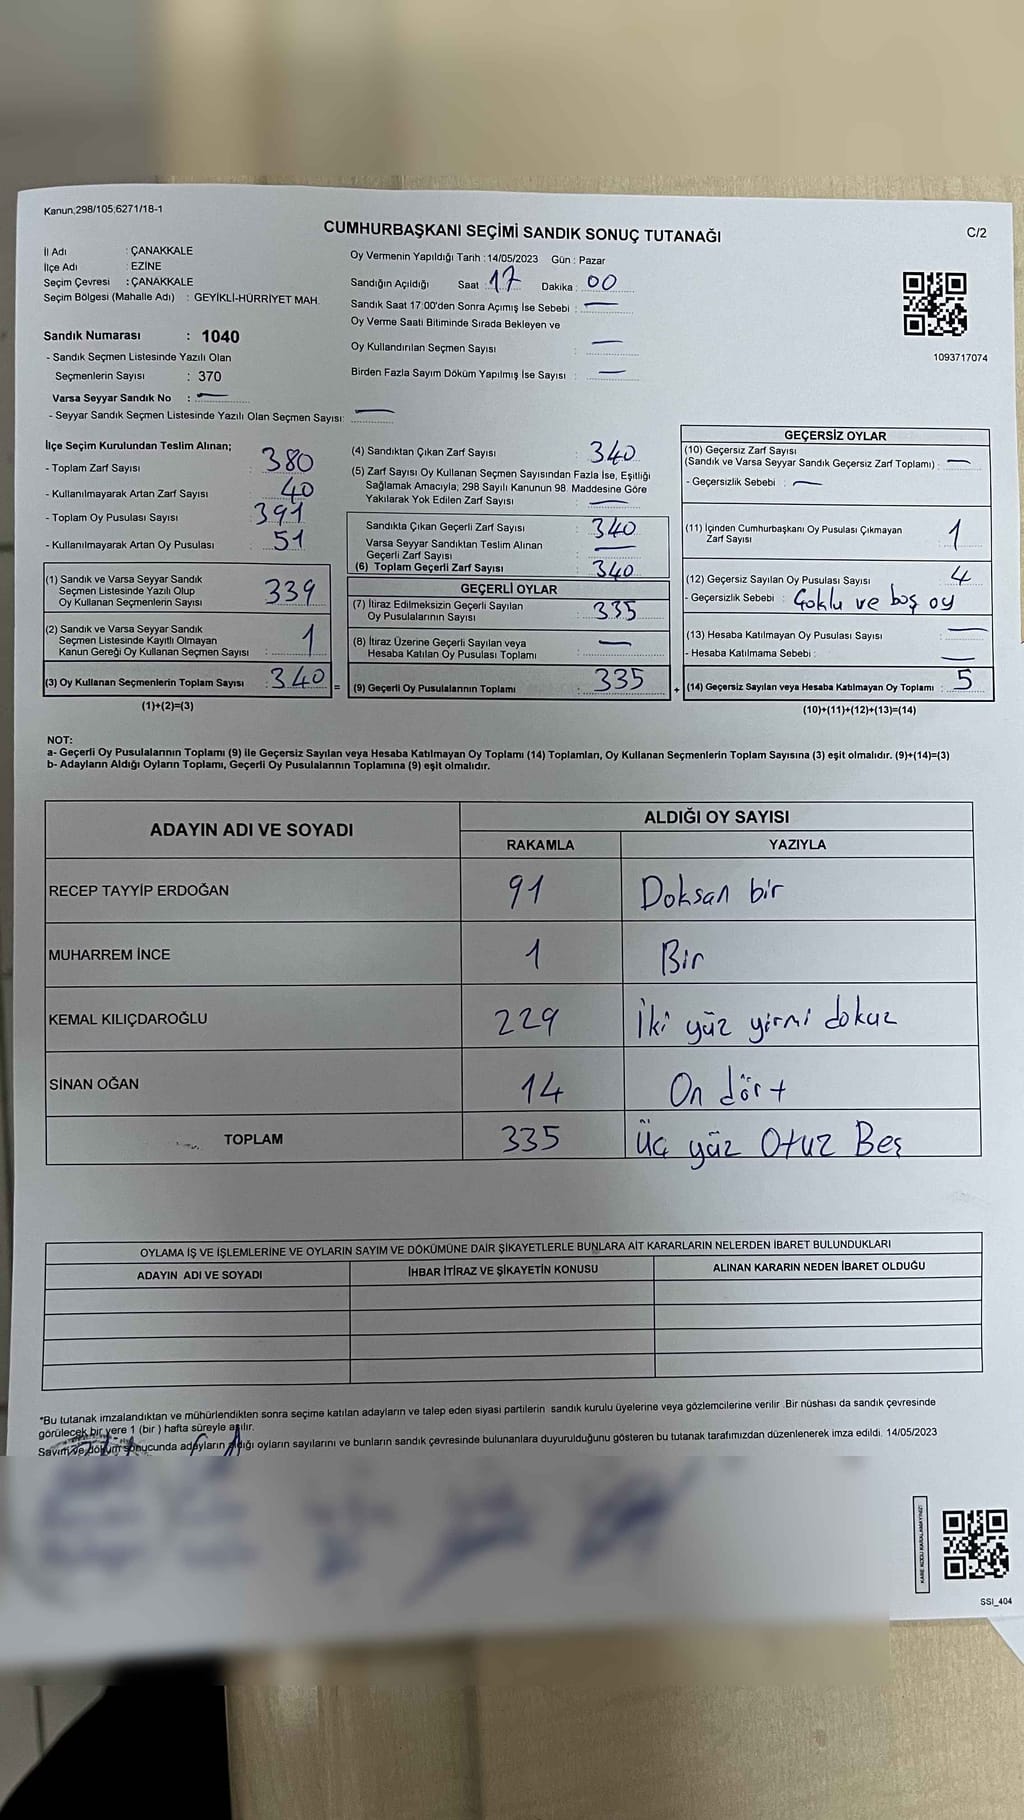 Kanun;298/105;6271/18-1
CUMHURBAŞKANI SEÇİMİ SANDIK SONUÇ TUTANAĞI
C/2
İl Adı : ÇANAKKALE
İlçe Adı : EZİNE
Seçim Çevresi : ÇANAKKALE
Seçim Bölgesi (Mahalle Adı) : GEYİKLİ-HÜRRİYET MAH.
Sandık Numarası : 1040
- Sandık Seçmen Listesinde Yazılı Olan
Seçmenlerin Sayısı : 370
Varsa Seyyar Sandık No : —
- Seyyar Sandık Seçmen Listesinde Yazılı Olan Seçmen Sayısı: —
Oy Vermenin Yapıldığı Tarih : 14/05/2023 Gün : Pazar
Sandığın Açıldığı Saat : 17 Dakika : 00
Sandık Saat 17:00'den Sonra Açımış İse Sebebi : —
Oy Verme Saati Bitiminde Sırada Bekleyen ve
Oy Kullandırılan Seçmen Sayısı : —
Birden Fazla Sayım Döküm Yapılmış İse Sayısı : —
1093717074
İlçe Seçim Kurulundan Teslim Alınan;
- Toplam Zarf Sayısı : 380
- Kullanılmayarak Artan Zarf Sayısı : 40
- Toplam Oy Pusulası Sayısı : 391
- Kullanılmayarak Artan Oy Pusulası : 51
(1) Sandık ve Varsa Seyyar Sandık
Seçmen Listesinde Yazılı Olup
Oy Kullanan Seçmenlerin Sayısı : 339
(2) Sandık ve Varsa Seyyar Sandık
Seçmen Listesinde Kayıtlı Olmayan
Kanun Gereği Oy Kullanan Seçmen Sayısı : 1
(3) Oy Kullanan Seçmenlerin Toplam Sayısı : 340 =
(1)+(2)=(3)
(4) Sandıktan Çıkan Zarf Sayısı : 340
(5) Zarf Sayısı Oy Kullanan Seçmen Sayısından Fazla İse, Eşitliği
Sağlamak Amacıyla; 298 Sayılı Kanunun 98. Maddesine Göre
Yakılarak Yok Edilen Zarf Sayısı : —
Sandıkta Çıkan Geçerli Zarf Sayısı : 340
Varsa Seyyar Sandıktan Teslim Alınan
Geçerli Zarf Sayısı : —
(6) Toplam Geçerli Zarf Sayısı : 340
GEÇERLİ OYLAR
(7) İtiraz Edilmeksizin Geçerli Sayılan
Oy Pusulalarının Sayısı : 335
(8) İtiraz Üzerine Geçerli Sayılan veya
Hesaba Katılan Oy Pusulası Toplamı : —
(9) Geçerli Oy Pusulalarının Toplamı : 335 +
GEÇERSİZ OYLAR
(10) Geçersiz Zarf Sayısı
(Sandık ve Varsa Seyyar Sandık Geçersiz Zarf Toplamı) : —
- Geçersizlik Sebebi : —
(11) İçinden Cumhurbaşkanı Oy Pusulası Çıkmayan
Zarf Sayısı : 1
(12) Geçersiz Sayılan Oy Pusulası Sayısı : 4
- Geçersizlik Sebebi : Çoklu ve boş oy
(13) Hesaba Katılmayan Oy Pusulası Sayısı : —
- Hesaba Katılmama Sebebi : —
(14) Geçersiz Sayılan veya Hesaba Katılmayan Oy Toplamı : 5
(10)+(11)+(12)+(13)=(14)
NOT:
a- Geçerli Oy Pusulalarının Toplamı (9) ile Geçersiz Sayılan veya Hesaba Katılmayan Oy Toplamı (14) Toplamları, Oy Kullanan Seçmenlerin Toplam Sayısına (3) eşit olmalıdır. (9)+(14)=(3)
b- Adayların Aldığı Oyların Toplamı, Geçerli Oy Pusulalarının Toplamına (9) eşit olmalıdır.
ADAYIN ADI VE SOYADI
ALDIĞI OY SAYISI
RAKAMLA YAZIYLA
RECEP TAYYİP ERDOĞAN 91 Doksan bir
MUHARREM İNCE 1 Bir
KEMAL KILIÇDAROĞLU 229 İki yüz yirmi dokuz
SİNAN OĞAN 14 On dört
TOPLAM 335 Üç yüz Otuz Beş
OYLAMA İŞ VE İŞLEMLERİNE VE OYLARIN SAYIM VE DÖKÜMÜNE DAİR ŞİKAYETLERLE BUNLARA AİT KARARLARIN NELERDEN İBARET BULUNDUKLARI
ADAYIN ADI VE SOYADI İHBAR İTİRAZ VE ŞİKAYETİN KONUSU ALINAN KARARIN NEDEN İBARET OLDUĞU
*Bu tutanak imzalandıktan ve mühürlendikten sonra seçime katılan adayların ve talep eden siyasi partilerin sandık kurulu üyelerine veya gözlemcilerine verilir .Bir nüshası da sandık çevresinde
görülecek bir yere 1 (bir ) hafta süreyle asılır.
Sayım ve döküm sonucunda adayların aldığı oyların sayılarını ve bunların sandık çevresinde bulunanlara duyurulduğunu gösteren bu tutanak tarafımızdan düzenlenerek imza edildi. 14/05/2023
KARE KODU KARALAMAYINIZ!
SSI_404